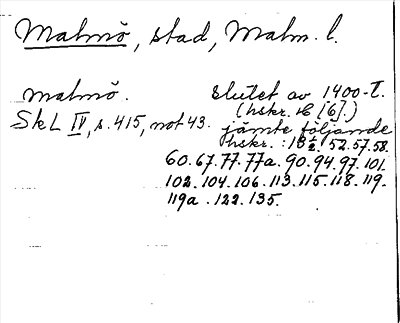 Malmö, stad, Malm. l.
malmö. slutet av 1400-t.
(hskr. 16 [6].)
SkL IV, s. 415, not 43. jämte följande
hskr.: 18 1/2. 52. 57. 58.
60. 67. 77. 77a. 90. 94. 97. 101.
102. 104. 106. 113. 115. 118. 119.
119a. 122. 135.